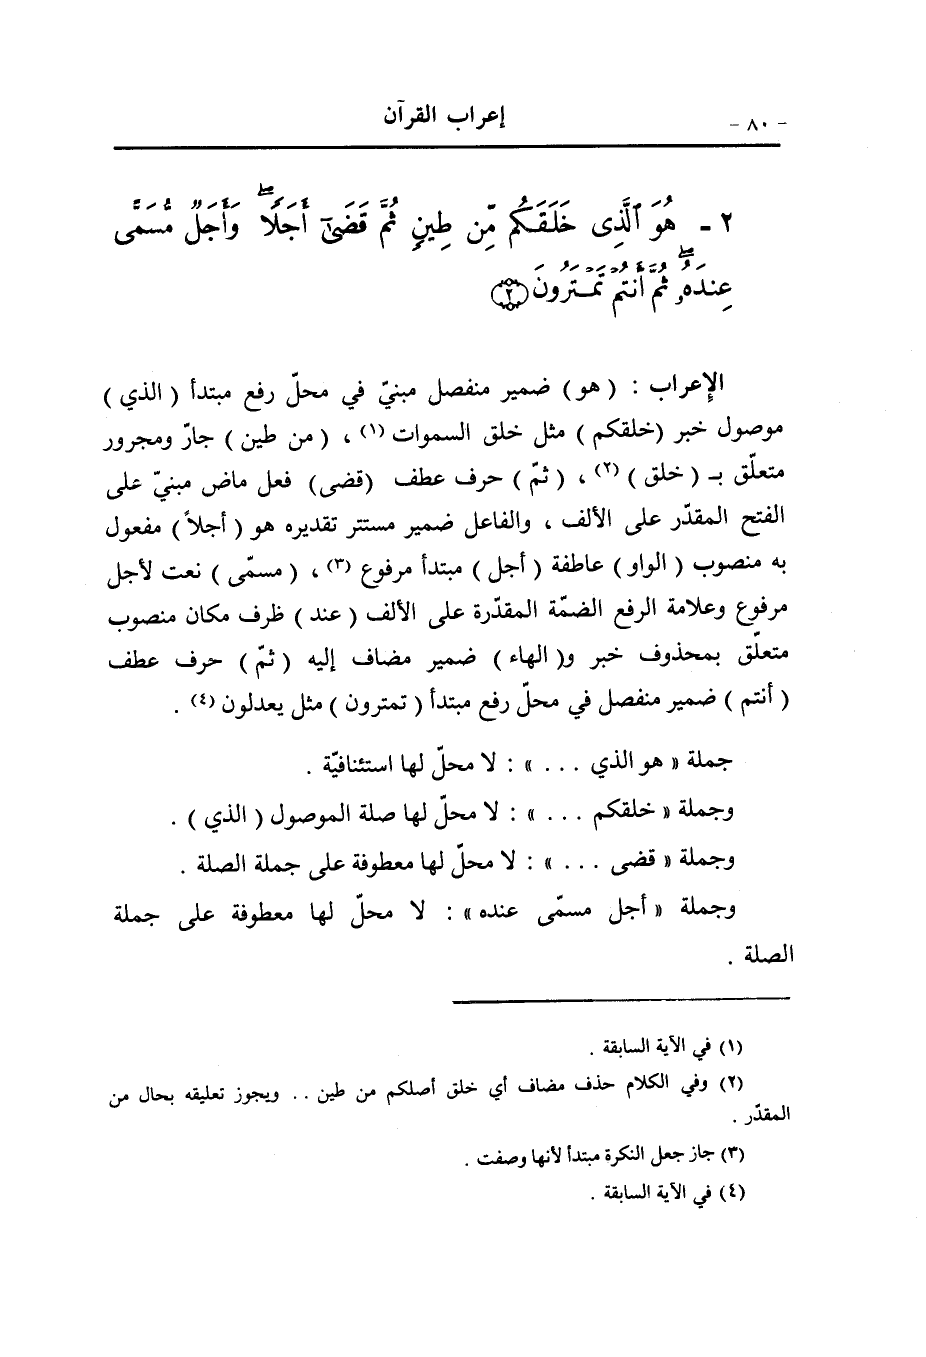 - ٨٠ - إعراب القرآن
٢ - هُوَ ٱلَّذِى خَلَقَكُم مِّن طِينٍ ثُمَّ قَضَىٰٓ أَجَلًا ۖ وَأَجَلٌ مُّسَمًّى
عِندَهُۥ ۖ ثُمَّ أَنتُمْ تَمْتَرُونَ ﴿٢﴾
الإعراب : ( هو ) ضمير منفصل مبنيّ في محلّ رفع مبتدأ ( الذي )
موصول خبر (خلقكم ) مثل خلق السموات (١) ، ( من طين ) جارّ ومجرور
متعلّق بـ ( خلق ) (٢) ، ( ثمّ ) حرف عطف (قضى) فعل ماض مبنيّ على
الفتح المقدّر على الألف ، والفاعل ضمير مستتر تقديره هو ( أجلاً ) مفعول
به منصوب ( الواو ) عاطفة ( أجل ) مبتدأ مرفوع (٣) ، ( مسمّى ) نعت لأجل
مرفوع وعلامة الرفع الضمّة المقدّرة على الألف ( عند ) ظرف مكان منصوب
متعلّق بمحذوف خبر و( الهاء ) ضمير مضاف إليه ( ثمّ ) حرف عطف
( أنتم ) ضمير منفصل في محلّ رفع مبتدأ ( تمترون ) مثل يعدلون (٤) .
جملة « هو الذي ... » : لا محلّ لها استئنافيّة .
وجملة « خلقكم ... » : لا محلّ لها صلة الموصول ( الذي ) .
وجملة « قضى ... » : لا محلّ لها معطوفة على جملة الصلة .
وجملة « أجل مسمّى عنده » : لا محلّ لها معطوفة على جملة
الصلة .
(١) في الآية السابقة .
(٢) وفي الكلام حذف مضاف أي خلق أصلكم من طين .. ويجوز تعليقه بحال من
المقدّر .
(٣) جاز جعل النكرة مبتدأ لأنها وصفت .
(٤) في الآية السابقة .